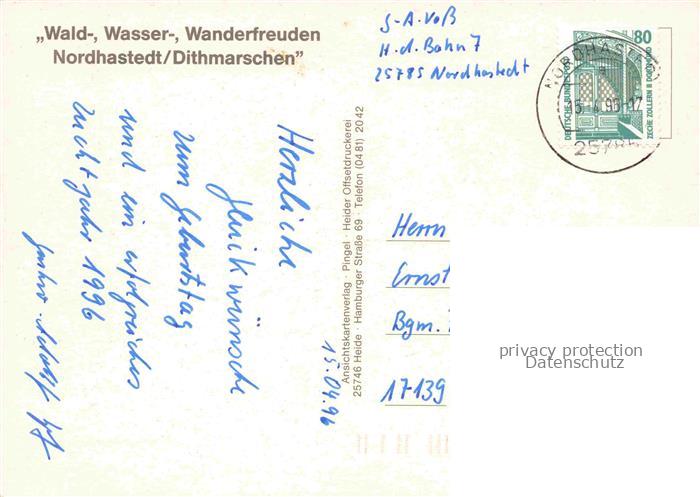 „Wald-, Wasser-, Wanderfreuden
Nordhastedt/Dithmarschen"
G-A. Voß
H. d. Bahn 7
25785 Nordhastedt
80
DEUTSCHE BUNDESPOST
ZECHE ZOLLERN II DORTMUND
NORDHASTEDT
15.4.96-17
25785
Herzliche
Glückwünsche
zum Geburtstag
und ein erfolgreiches
Zuchtjahr 1996
Gustav-Adolf
15.04.96
Ansichtskartenverlag · Pingel · Heider Offsetdruckerei
25746 Heide · Hamburger Straße 69 · Telefon (0481) 2042
Herrn
Ernst
Bgm.
17139
privacy protection
Datenschutz